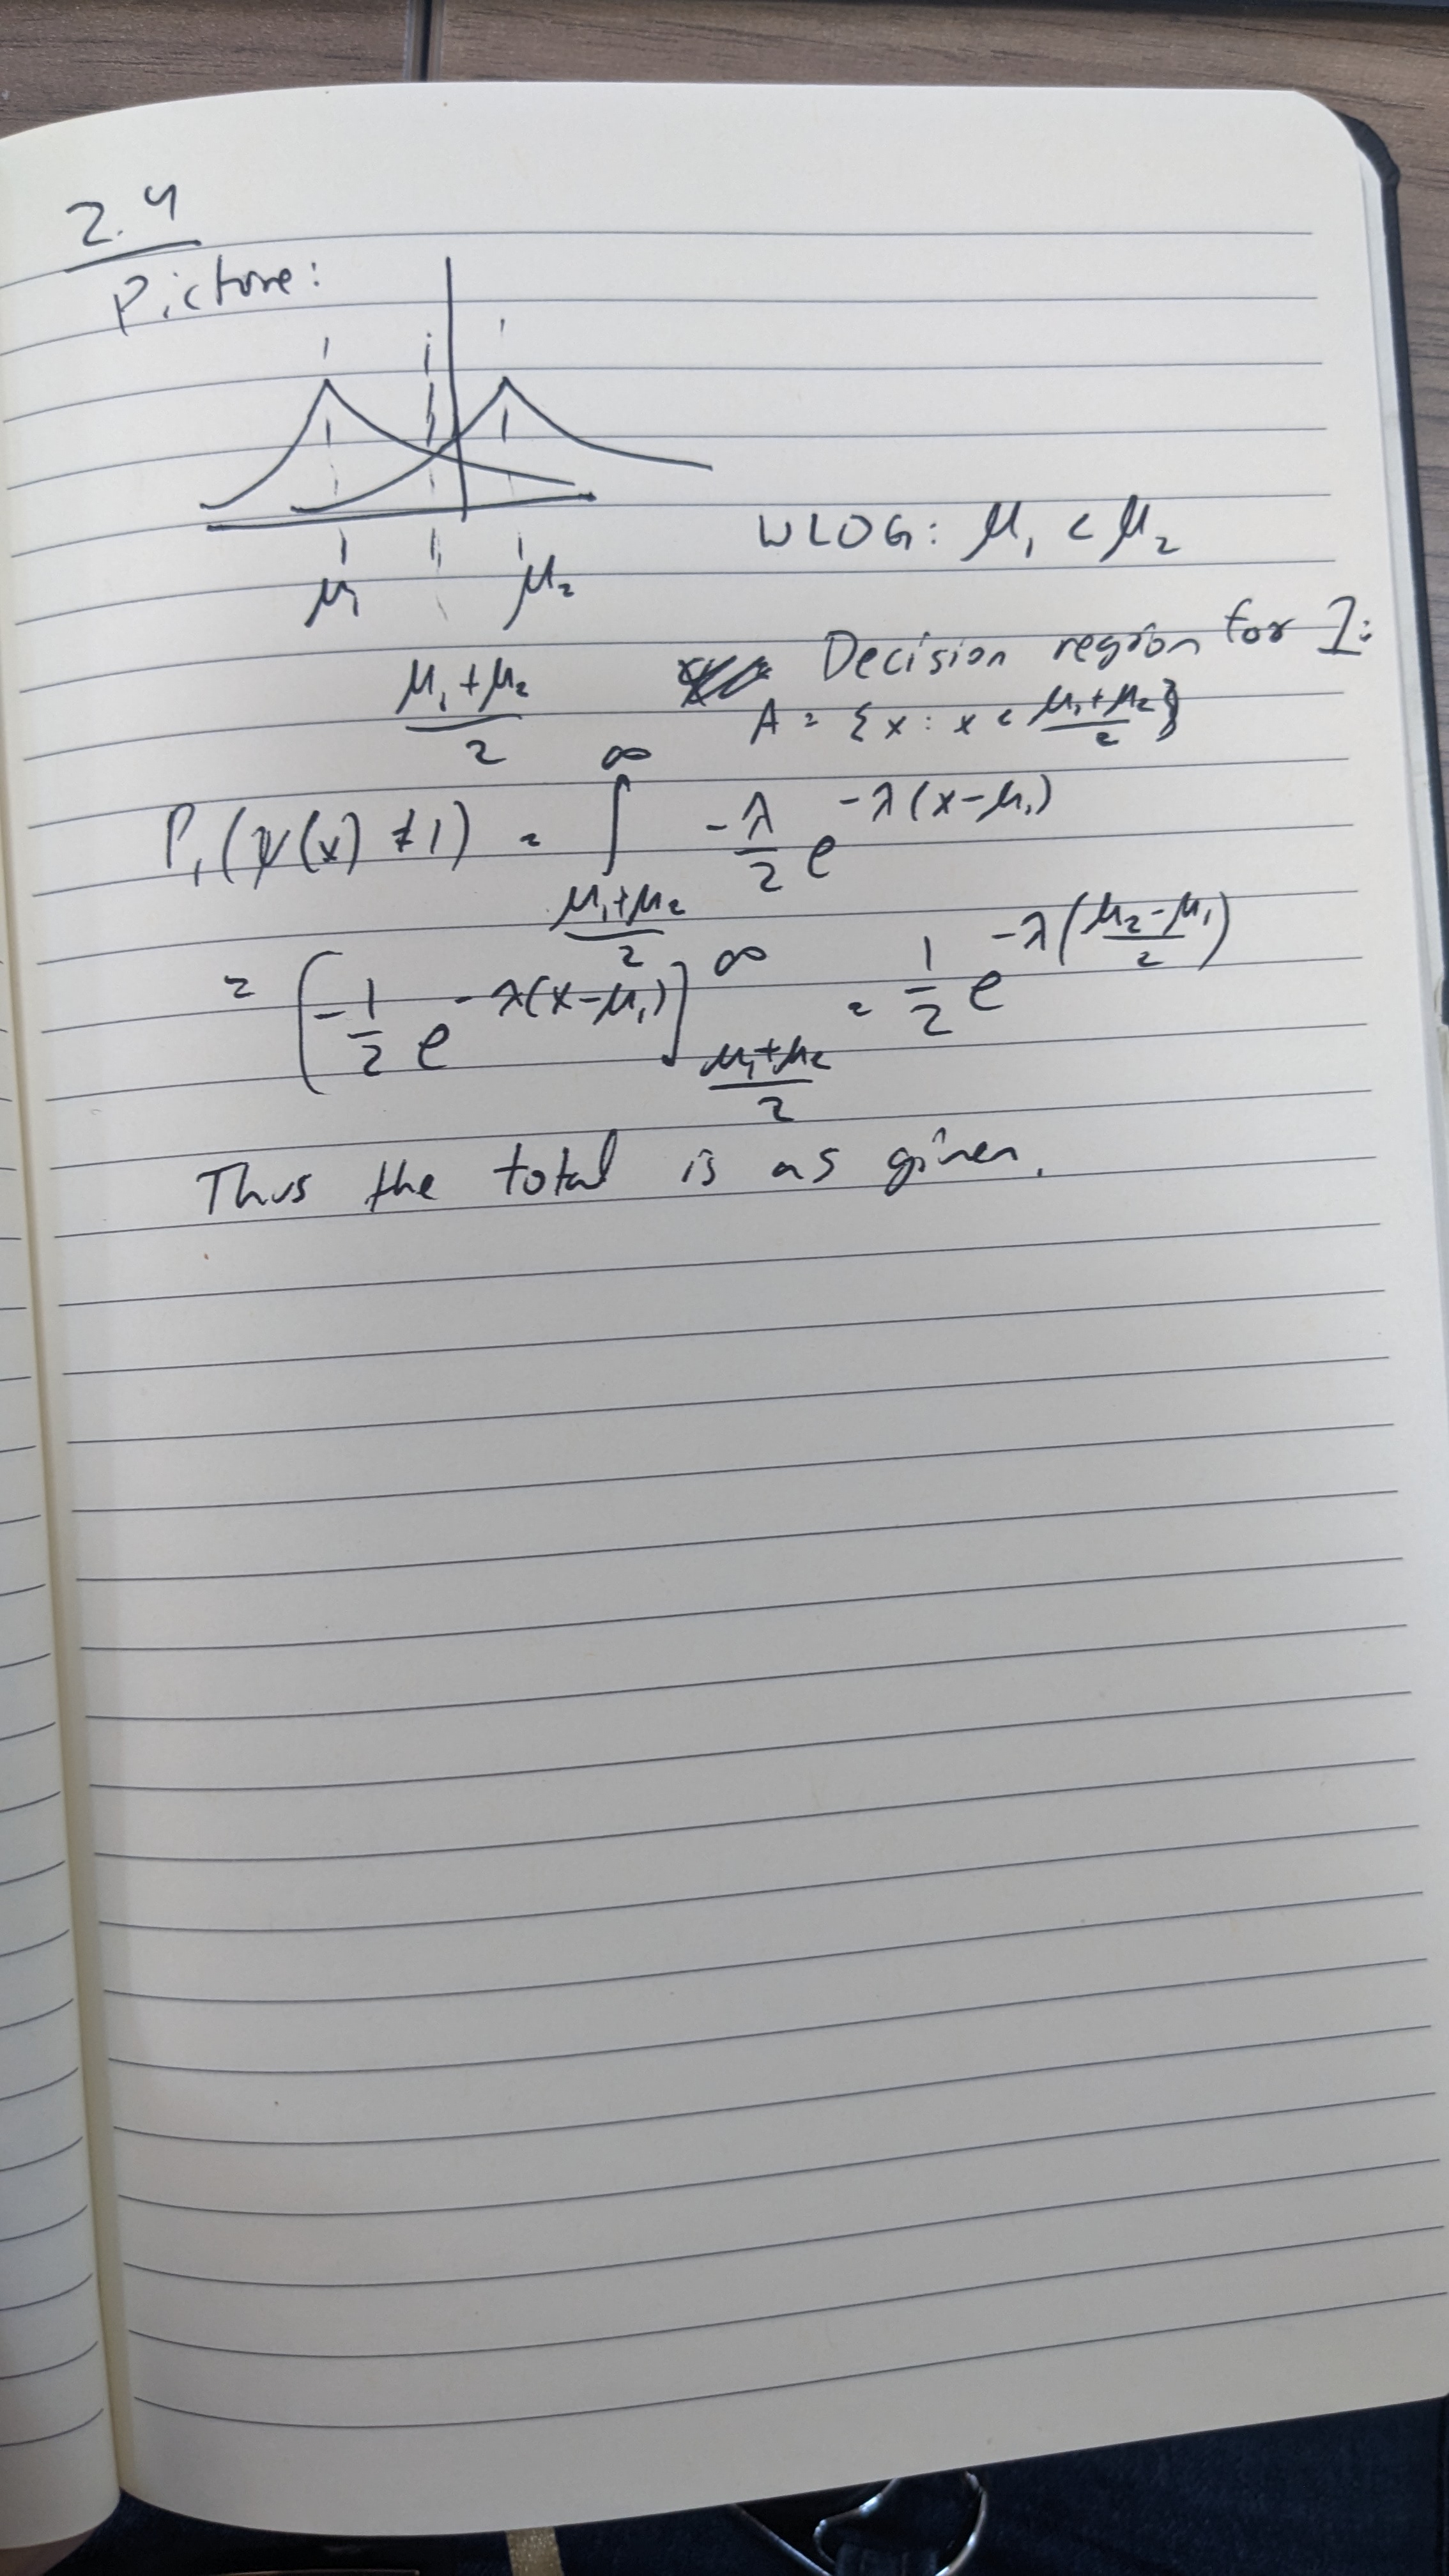 2.4
Picture:
μ₁ μ₂
(μ₁+μ₂)/2
WLOG: μ₁ < μ₂
Decision region for 1:
A = {x : x < (μ₁+μ₂)/2}
P₁(ψ(x) ≠ 1) = ∫_{(μ₁+μ₂)/2}^{∞} -λ/2 e^{-λ(x-μ₁)}
= [-1/2 e^{-λ(x-μ₁)}]_{(μ₁+μ₂)/2}^{∞} = 1/2 e^{-λ((μ₂-μ₁)/2)}
Thus the total is as given.